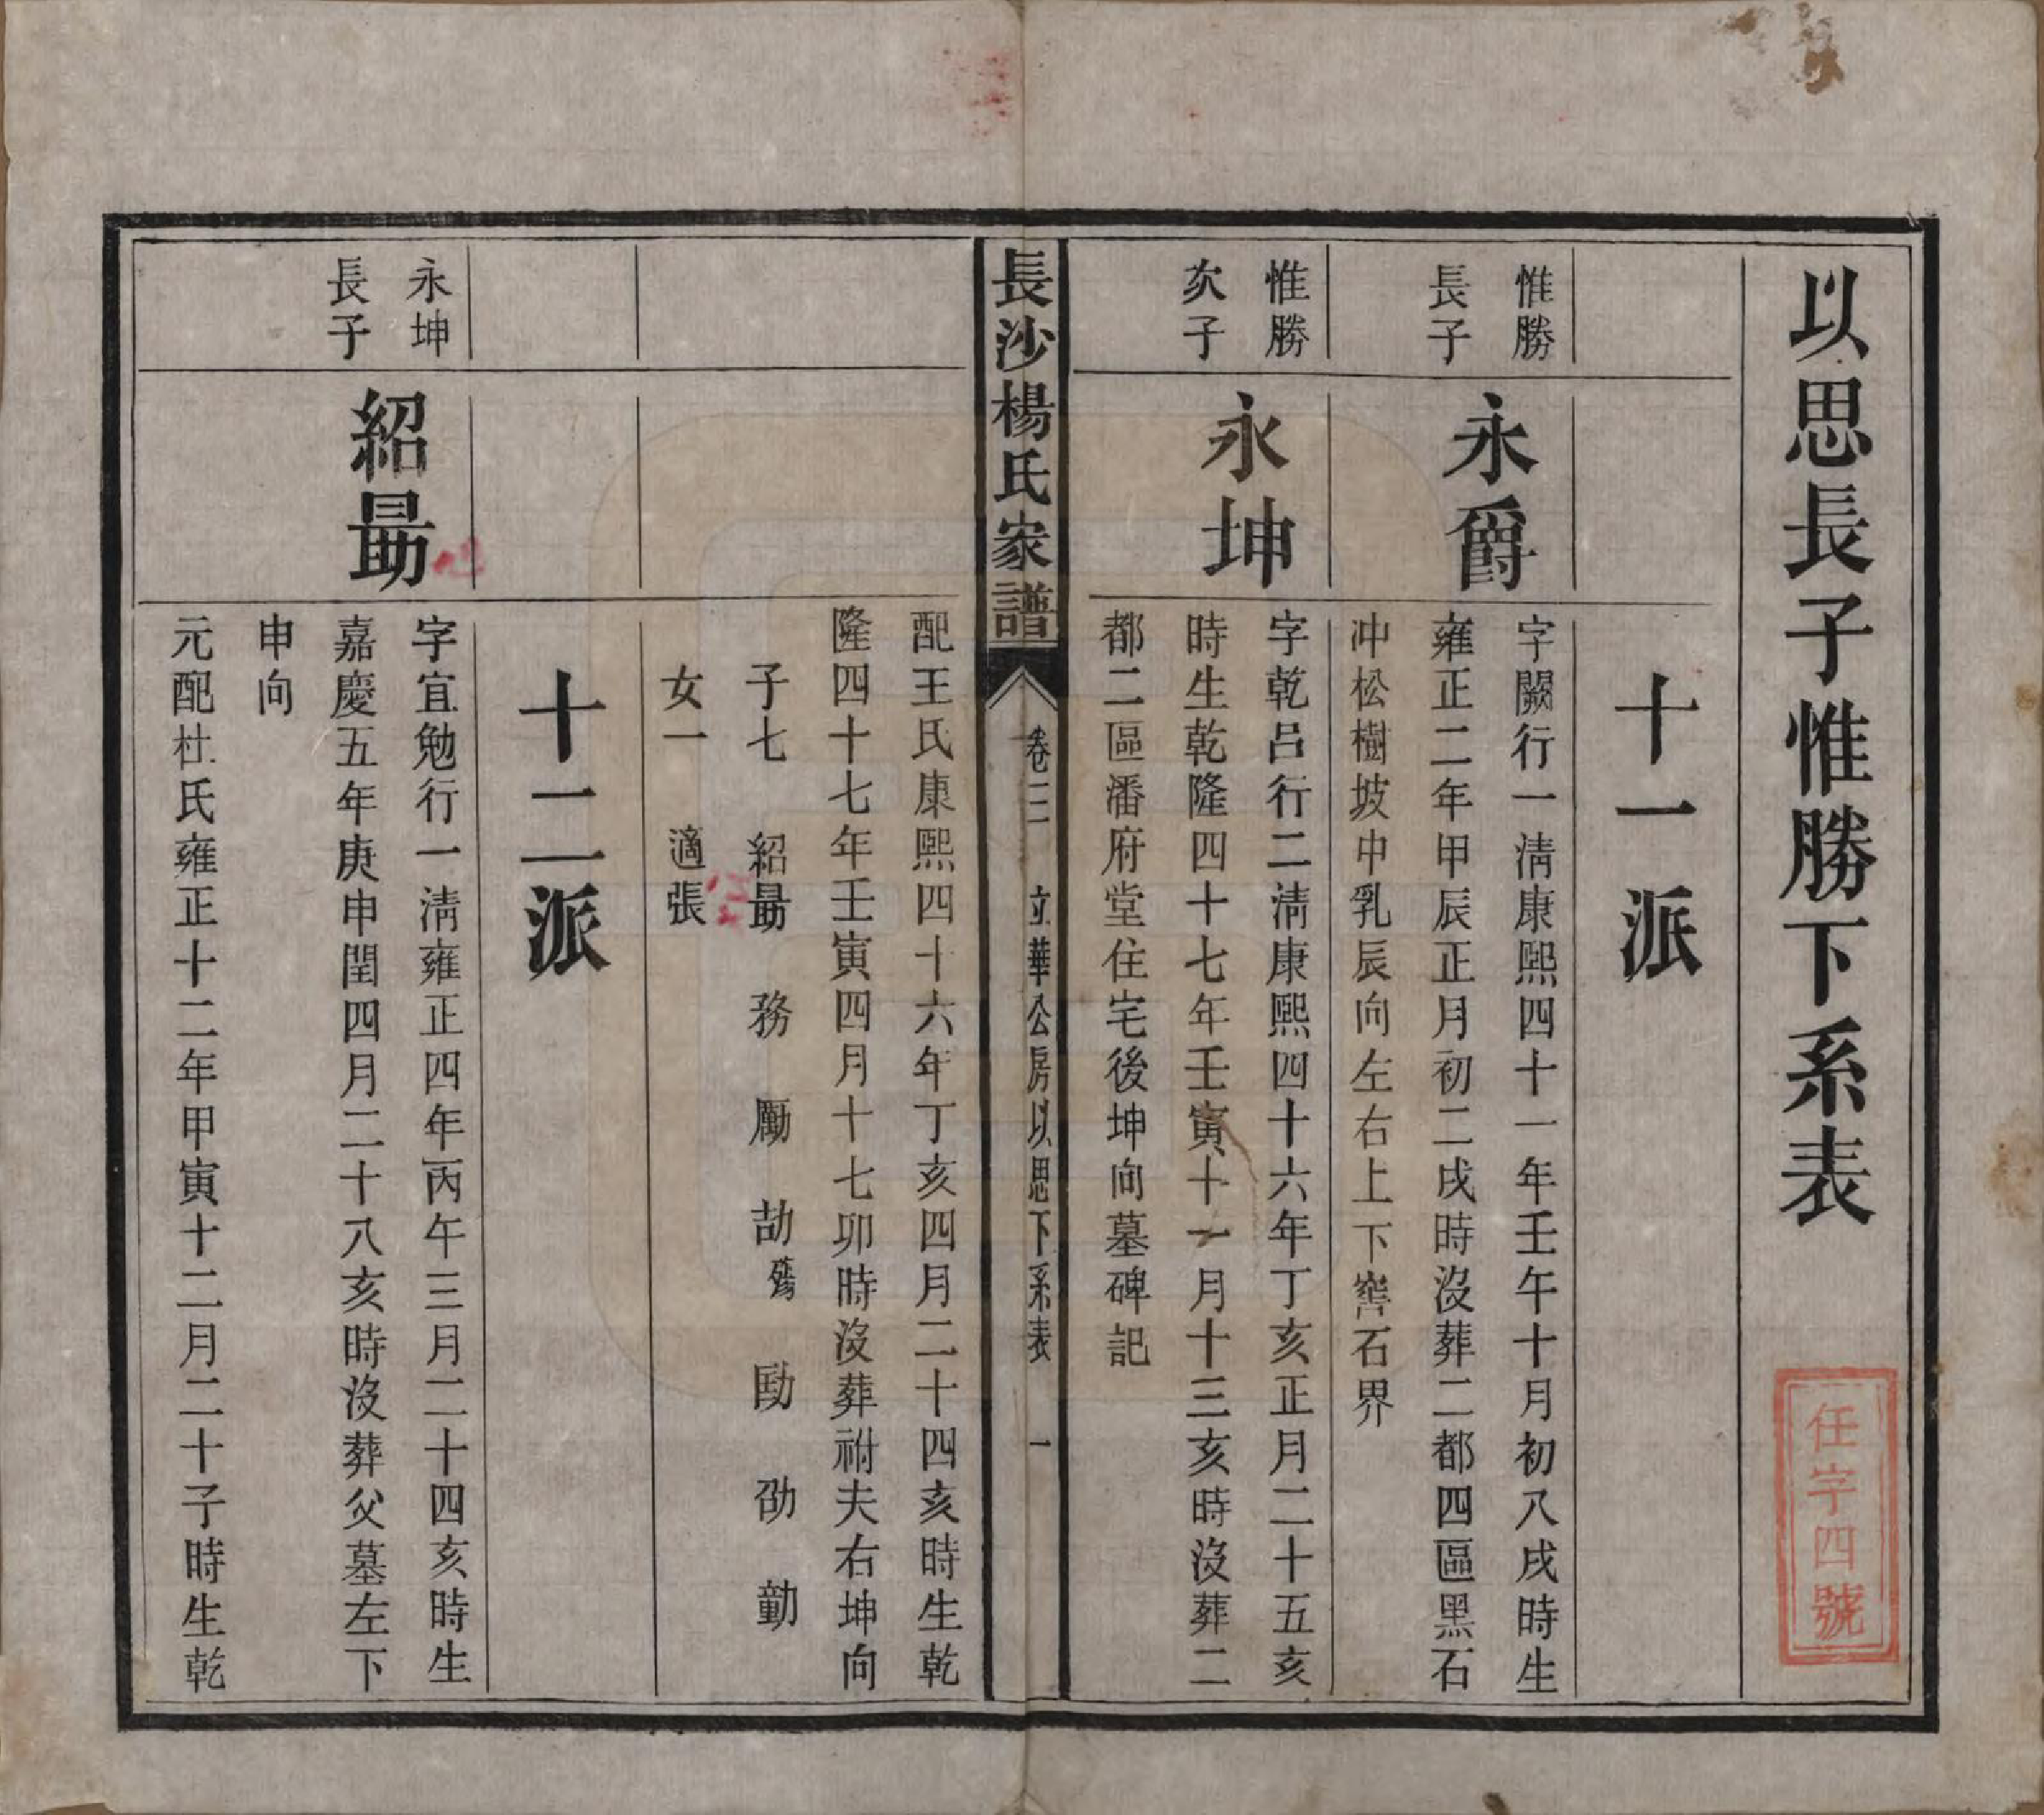 以思長子惟勝下系表
任字四號
十一派
惟勝
長子
永爵
字闕行一淸康熙四十一年壬午十月初八戌時生
雍正二年甲辰正月初二戌時沒葬二都四區黑石
冲松樹坡中乳辰向左右上下窖石界
惟勝
次子
永坤
字乾呂行二淸康熙四十六年丁亥正月二十五亥
時生乾隆四十七年壬寅十一月十三亥時沒葬二
都二區潘府堂住宅後坤向墓碑記
長沙楊氏家譜
卷三 立華公房以思下系表 一
配王氏康熙四十六年丁亥四月二十四亥時生乾
隆四十七年壬寅四月十七卯時沒葬祔夫右坤向
子七 紹勗 務 勵 劼殤 勛 劭 勤
女一 適張
十二派
永坤
長子
紹勗
字宜勉行一淸雍正四年丙午三月二十四亥時生
嘉慶五年庚申閏四月二十八亥時沒葬父墓左下
申向
元配杜氏雍正十二年甲寅十二月二十子時生乾